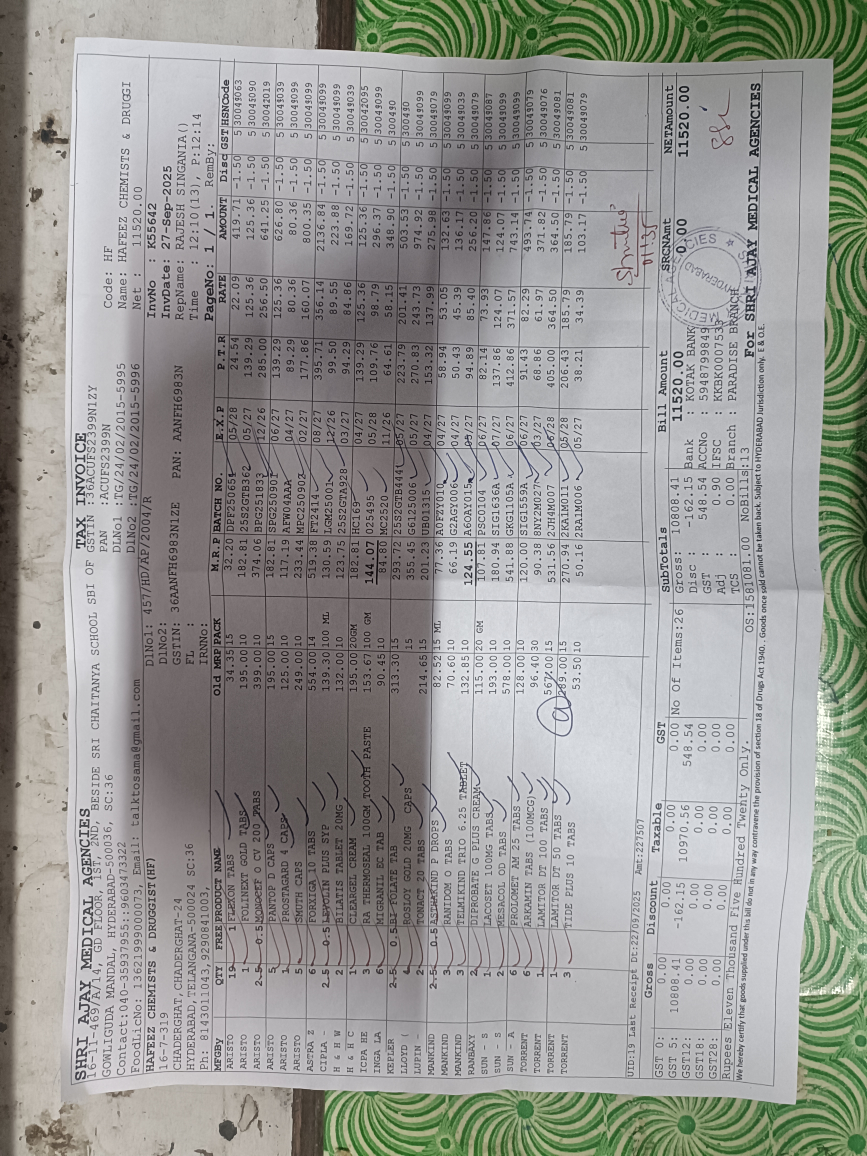 SHRI AJAY MEDICAL AGENCIES TAX INVOICE
16-11-469/A/14, GD FLOOR, 1ST, 2ND, BESIDE SRI CHAITANYA SCHOOL SBI OF GSTIN :36ACUFS2399N1ZY Code: HF
GOWLIGUDA MANDAL, HYDERABAD-500036, SC:36 PAN :ACUFS2399N Name: HAFEEZ CHEMISTS & DRUGGI
Contact:040-35937955::9603473322 DlNo1 :TG/24/02/2015-5995 Net : 11520.00
FoodLicNo: 13621999000073, Email: talktosama@gmail.com DlNo2 :TG/24/02/2015-5996
HAFEEZ CHEMISTS & DRUGGIST(HF) DlNo1: 457/HD/AP/2004/R InvNo : K55642
16-7-319 DlNo2: InvDate: 27-Sep-2025
CHADERGHAT,CHADERGHAT-24 GSTIN: 36AANFH6983N1ZE PAN: AANFH6983N RepName: RAJESH SINGANIA()
HYDERABAD,TELANGANA-500024 SC:36 FL : Time : 12:10(13) P:12:14
Ph: 8143011043,9290841003, IRNNo: PageNo: 1 / 1 RemBy:
MFGBy QTY FREE PRODUCT NAME Old MRP PACK M.R.P BATCH NO. E.X.P P.T.R RATE AMOUNT Disc GST HSNCode
ARISTO 19 1 FLEXON TABS 34.35 15 32.20 DPF250651 05/28 24.54 22.09 419.71 -1.50 5 30049063
ARISTO 1 FOLINEXT GOLD TABS 195.00 10 182.81 25S2GTB362 05/27 139.29 125.36 125.36 -1.50 5 30049090
ARISTO 2.5 0.5 MONOCEF O CV 200 TABS 399.00 10 374.06 BPG251833 12/26 285.00 256.50 641.25 -1.50 5 30042019
ARISTO 5 PANTOP D CAPS 195.00 15 182.81 SPG250901 06/27 139.29 125.36 626.80 -1.50 5 30049039
ARISTO 1 PROSTACARD 4 CAPS 125.00 10 117.19 AFW04AAA 04/27 89.29 80.36 80.36 -1.50 5 30049099
ARISTO 5 SMUTH CAPS 249.00 10 233.44 MPC250902 02/27 177.86 160.07 800.35 -1.50 5 30049099
ASTRA Z 6 FORXIGA 10 TABS 554.00 14 519.38 FT2414 08/27 395.71 356.14 2136.84 -1.50 5 30049099
CIPLA - 2.5 0.5 LEVOLIN PLUS SYP 139.30 100 ML 130.59 LGM25001 12/26 99.50 89.55 223.88 -1.50 5 30049099
H & H W 2 BILATIS TABLET 20MG 132.00 10 123.75 25S2GTA928 03/27 94.29 84.86 169.72 -1.50 5 30049039
H & H C 1 CLEARGEL CREAM 195.00 20GM 182.81 HC169 04/27 139.29 125.36 125.36 -1.50 5 30042095
ICPA HE 3 RA THERMOSEAL 100GM TOOTH PASTE 153.67 100 GM 144.07 025495 05/28 109.76 98.79 296.37 -1.50 5 30049099
INGA LA 6 MIGRANIL EC TAB 90.45 10 84.80 MC2520 11/26 64.61 58.15 348.90 -1.50 5 300490
KEPLER 2.5 0.5 BI FOLATE TAB 313.30 15 293.72 25S2GTB444 05/27 223.79 201.41 503.53 -1.50 5 300490
LLOYD ( 4 GOLD 20MG CAPS 15 355.45 G6125006 05/27 270.83 243.73 974.92 -1.50 5 30049099
LUPIN - 2 TONACT 20 TABS 214.65 15 201.23 UB01315 04/27 153.32 137.99 275.98 -1.50 5 30049079
MANKIND 2.5 0.5 ASTHAKIND P DROPS 82.52 15 ML 77.36 A0F2Y010 04/27 58.94 53.05 132.63 -1.50 5 30049099
MANKIND 3 RANIDOM O TABS 70.60 10 66.19 G2AGY006 04/27 50.43 45.39 136.17 -1.50 5 30049039
MANKIND 3 TELMIKIND TRIO 6.25 TABLET 132.85 10 124.55 A6OAY015 05/27 94.89 85.40 256.20 -1.50 5 30049079
RANBAXY 2 DIPROBATE PLUS CREAM 115.00 20 GM 107.81 PSC0104 06/27 82.14 73.93 147.86 -1.50 5 30049087
SUN - S 1 LACOSET 100MG TABS 193.00 10 180.94 SIG1636A 07/27 137.86 124.07 124.07 -1.50 5 30049099
SUN - S 2 MESACOL OD TABS 578.00 10 541.88 GKG1105A 06/27 412.86 371.57 743.14 -1.50 5 30049099
SUN - A 6 PROLOMET AM 25 TABS 128.00 10 120.00 SIG1559A 06/27 91.43 82.29 493.74 -1.50 5 30049079
TORRENT 6 ARKAMIN TABS (100MCG) 96.40 30 90.38 8NY2M027 03/27 68.86 61.97 371.82 -1.50 5 30049076
TORRENT 1 LAMITOR DT 100 TABS 567.00 15 531.56 2JH4M007 06/28 405.00 364.50 364.50 -1.50 5 30049081
TORRENT 1 LAMITOR DT 50 TABS 289.00 15 270.94 2KA1M011 05/28 206.43 185.79 185.79 -1.50 5 30049081
TORRENT 3 TIDE PLUS 10 TABS 53.50 10 50.16 2RA1M006 05/27 38.21 34.39 103.17 -1.50 5 30049079
UID:19 Last Receipt Dt:22/09/2025 Amt:227507
Gross Discount Taxable GST SubTotals Bill Amount SRCNAmt NETAmount
GST 0: 0.00 0.00 0.00 0.00 No Of Items:26 Gross: 10808.41 11520.00 0.00 11520.00
GST 5: 10808.41 -162.15 10970.56 548.54 Disc : -162.15 Bank : KOTAK BANK
GST12: 0.00 0.00 0.00 0.00 GST : 548.54 ACCNo : 5948799849
GST18: 0.00 0.00 0.00 0.00 Adj : 0.00 IFSC : KKBK0007553
GST28: 0.00 0.00 0.00 0.00 TCS : 0.00 Branch : PARADISE BRANCH
Rupees Eleven Thousand Five Hundred Twenty Only. OS:1581081.00 NoBills:13 For SHRI AJAY MEDICAL AGENCIES
We hereby certify that goods supplied under this bill do not in any way contravene the provision of section 18 of Drugs Act 1940. . Goods once sold cannot be taken back. Subject to HYDERABAD Jurisdiction only. E & O.E.
MEDICAL AGENCIES
HYDERABAD